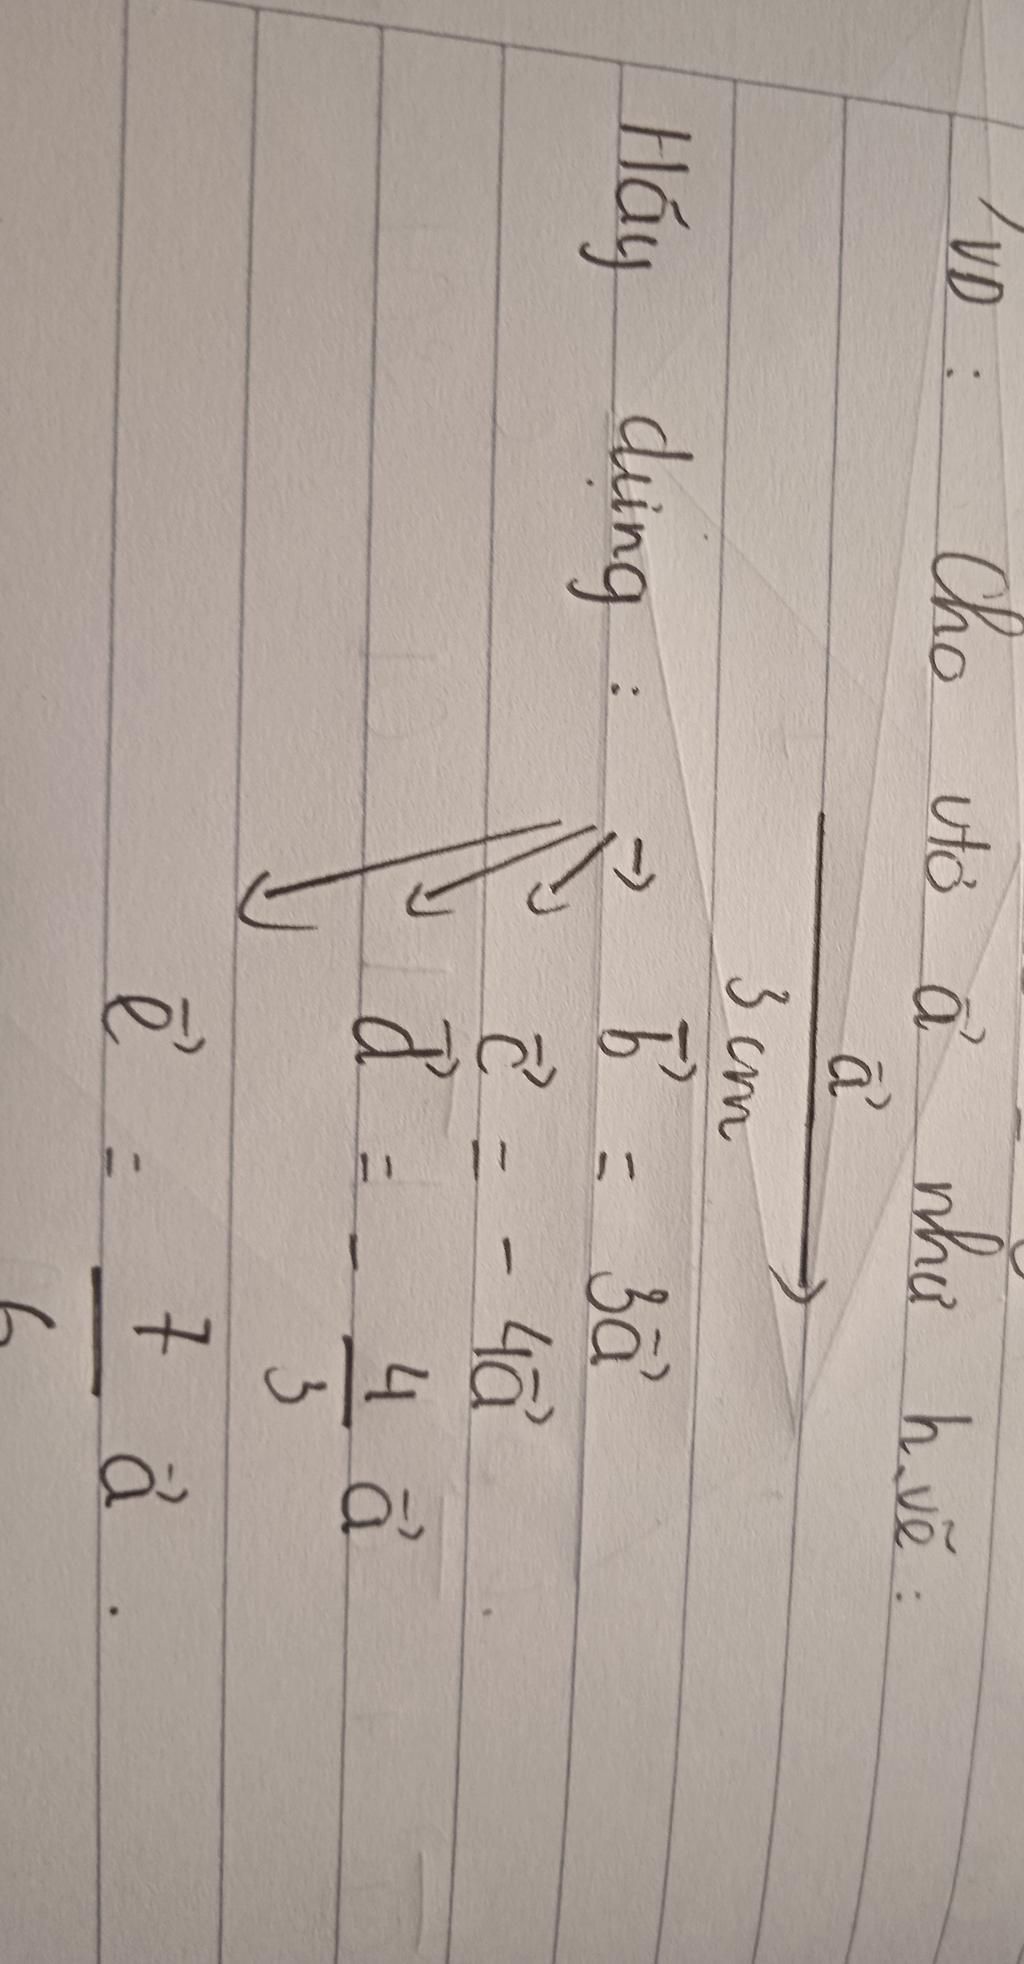 VD : Cho vtơ a⃗ như h.vẽ :
a⃗
3 cm
Hãy dựng : → b⃗ = 3a⃗
c⃗ = - 4a⃗
d⃗ = - 4/3 a⃗
e⃗ = 7/6 a⃗ .